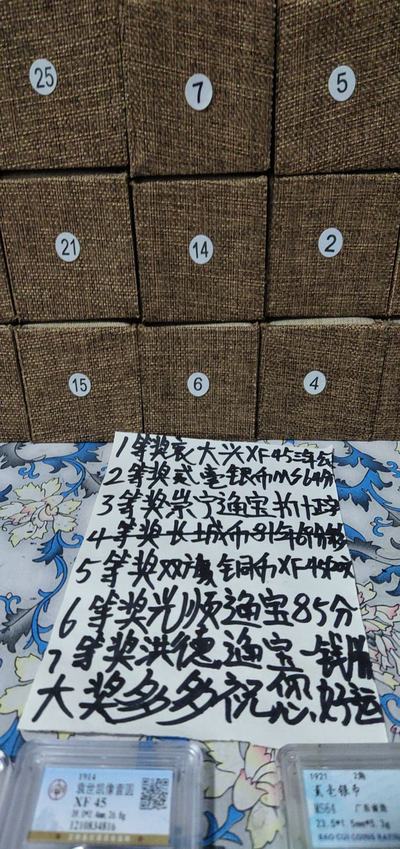 25 7 5
21 14 2
15 6 4
1等奖袁大头XF45三年
2等奖贰毫银币MS64分
3等奖崇宁通宝折十
4等奖长城币81年
5等奖双旗铜币XF45
6等奖光顺通宝85分
7等奖洪德通宝一钱
大奖多多祝您好运
1914
袁世凯像壹圆
XF 45
1210834816
1921 2角
贰毫银币
MS64 广东省造
23.5*1.5mm*5.3g